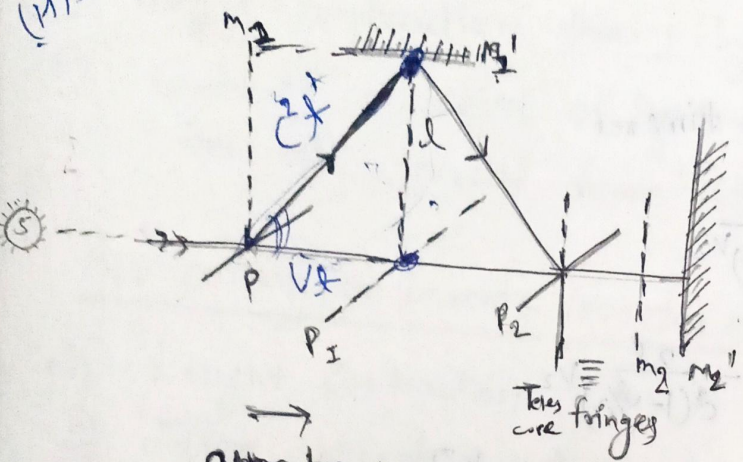 (M)
M1
M1'
ct
l
S
P
vt
P1
P2
M2
M2'
Teles
cope
fringes